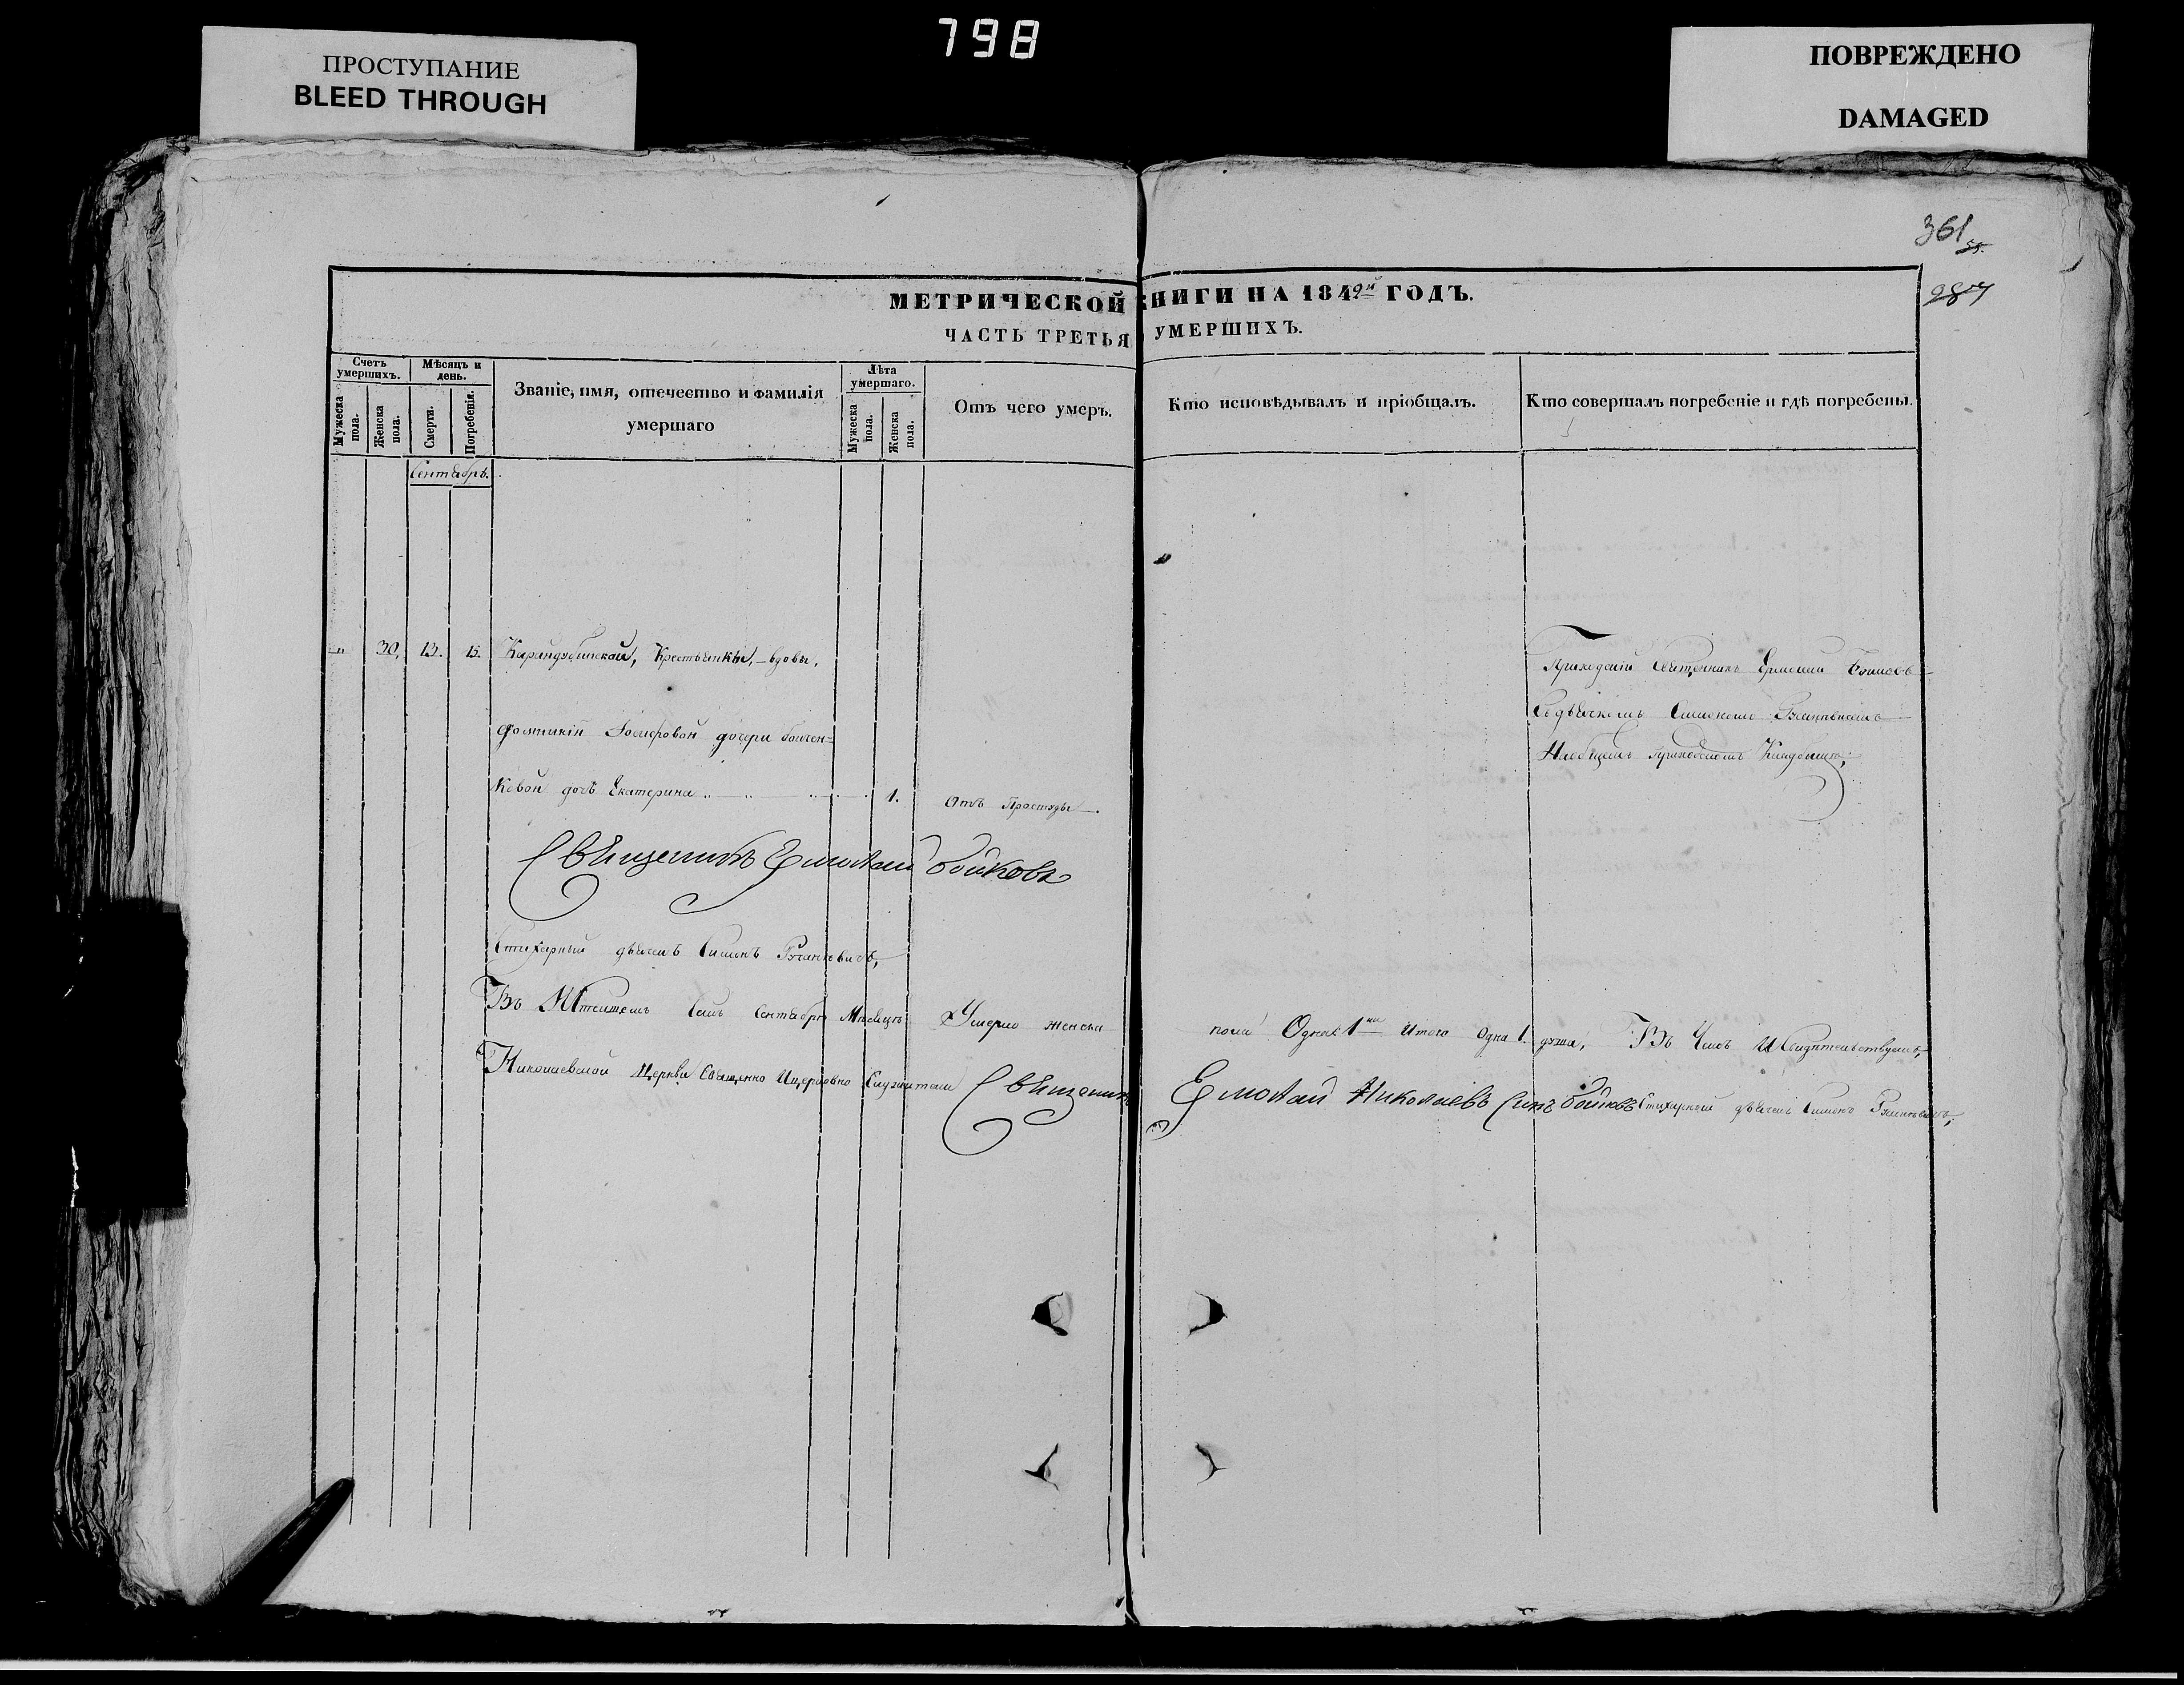 798
ПРОСТУПАНИЕ
BLEED THROUGH
ПОВРЕЖДЕНО
DAMAGED
361
МЕТРИЧЕСКОЙ КНИГИ НА 1849й ГОДЪ.
ЧАСТЬ ТРЕТЬЯ О УМЕРШИХЪ.
Счетъ умершихъ.
Мужеска пола.
Женска пола.
Мѣсяцъ и день.
Смерти.
Погребенія.
Званіе, имя, отечество и фамилія умершаго
Лѣта умершаго.
Мужеска пола.
Женска пола.
Отъ чего умеръ.
Кто исповѣдывалъ и пріобщалъ.
Кто совершалъ погребеніе и гдѣ погребены.
Сентябрь.
30. 13. 15. Крестьянки, вдовы,
дочери
ковой дочь Екатерина 1. Отъ Простуды
Приходскій Священникъ Ермолай Бойковъ
Содьячкомъ Симономъ
Наобщемъ приходскомъ Кладбищѣ,
Священникъ Ермолай Бойковъ
Стихарный дьячекъ Симонъ
Въ семъ Сентябрѣ Мѣсяцѣ Умерло женска пола Одна 1 Итого Одна 1. душа, Въ Чемъ И Свидѣтельствуемъ,
Николаевской Церкви Священно Ицерковно Служители Священникъ Ермолай Николаевъ Сынъ Бойковъ Стихарный дьячекъ Симонъ